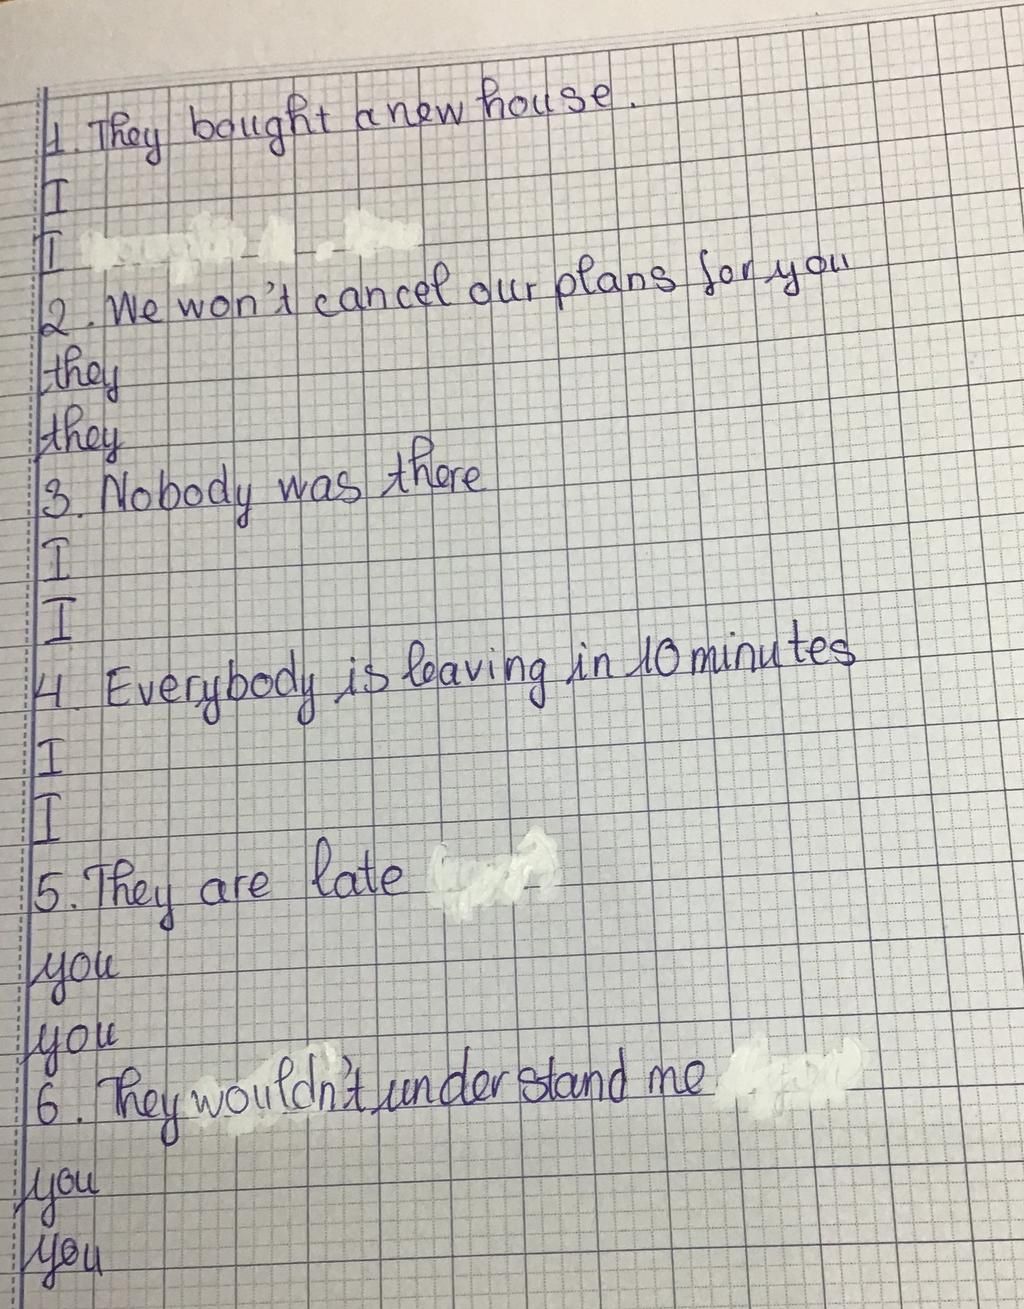 1. They bought a new house.
I
I
2. We won't cancel our plans for you
they
they
3. Nobody was there
I
I
4. Everybody is leaving in 10 minutes
I
I
5. They are late
you
you
6. They wouldn't understand me
you
you